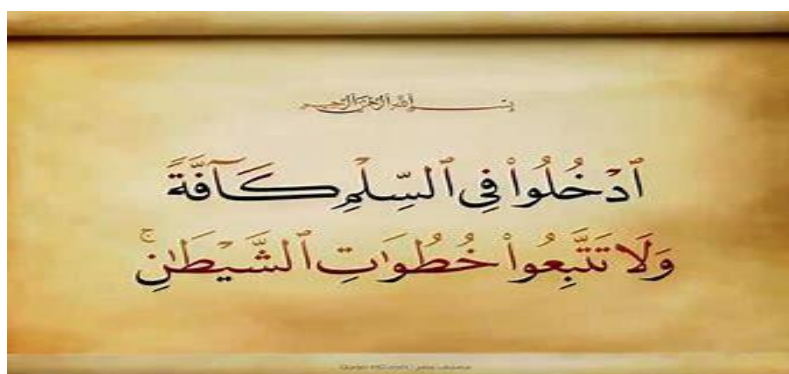 بسم الله الرحمن الرحيم
ٱدْخُلُوا۟ فِى ٱلسِّلْمِ كَآفَّةً
وَلَا تَتَّبِعُوا۟ خُطُوَٰتِ ٱلشَّيْطَٰنِ ۚ